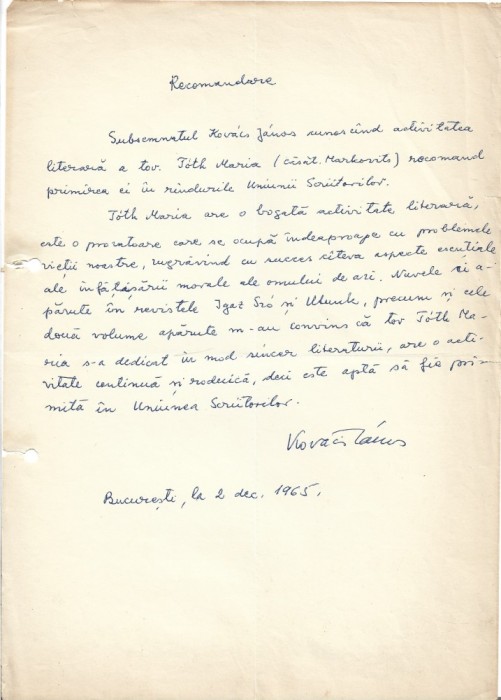 Recomandare
Subsemnatul Kovács János cunoscînd activitatea
literară a tov. Tóth Maria (căsăt. Markovits) recomand
primirea ei în rîndurile Uniunii Scriitorilor.
Tóth Maria are o bogată activitate literară,
este o prozatoare care se ocupă îndeaproape cu problemele
vieții noastre, zugrăvind cu succes cîteva aspecte esențiale
ale înfățișării morale ale omului de azi. Nuvele ei a-
părute în revistele Igaz Szó și Utunk, precum și cele
două volume apărute m-au convins că tov Tóth Ma-
ria s-a dedicat în mod sincer literaturii, are o acti-
vitate continuă și rodnică, deci este aptă să fie pri-
mită în Uniunea Scriitorilor.
Kovács János
București, la 2 dec. 1965.